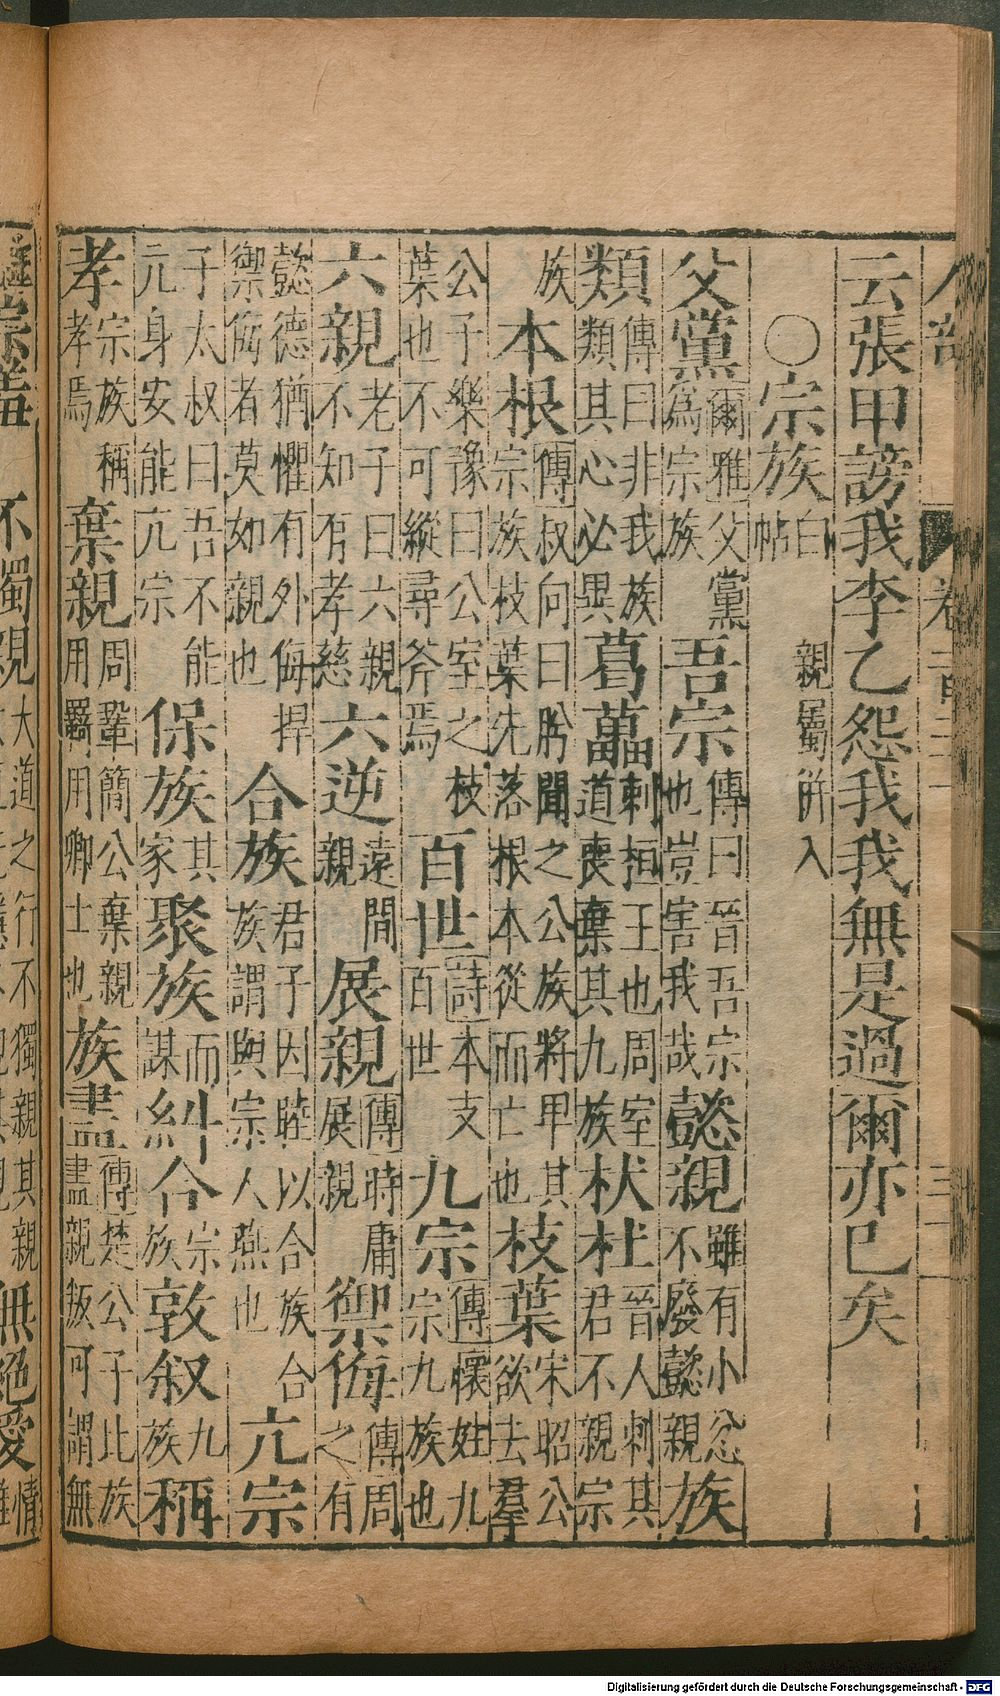 云張甲謗我李乙怨我我無是過爾亦已矣
○宗族 白帖 親屬併入
父黨爾雅父黨為宗族吾宗傳曰晉吾宗也豈害我哉懿親雖有小忿不廢懿親族
類傳曰非我族類其心必異葛藟刺桓王也周室道喪棄其九族杕杜晉人刺其君不親宗
族本根傳叔向曰肹聞之公族將甲其宗族枝葉先落根本從而亡也枝葉宋昭公欲去羣
公子樂豫曰公室之枝葉也不可縱尋斧焉百世詩本支百世九宗傳懷姓九宗九族也
六親老子曰六親不知有孝慈六逆遠間親展親傳時庸展親禦侮傳周之有
懿德猶懼有外侮捍禦侮者莫如親也合族君子因睦以合族合族謂與宗人燕也亢宗
子太叔曰吾不能元身安能亢宗保族其家聚族而謀糾合宗族敦叙九族稱
孝宗族稱孝焉棄親周鞏簡公棄親用羈用卿士也族盡傳楚公子比族盡親叛可謂無
不獨親大道之行不獨親其親無絕愛
Digitalisierung gefördert durch die Deutsche Forschungsgemeinschaft - DFG